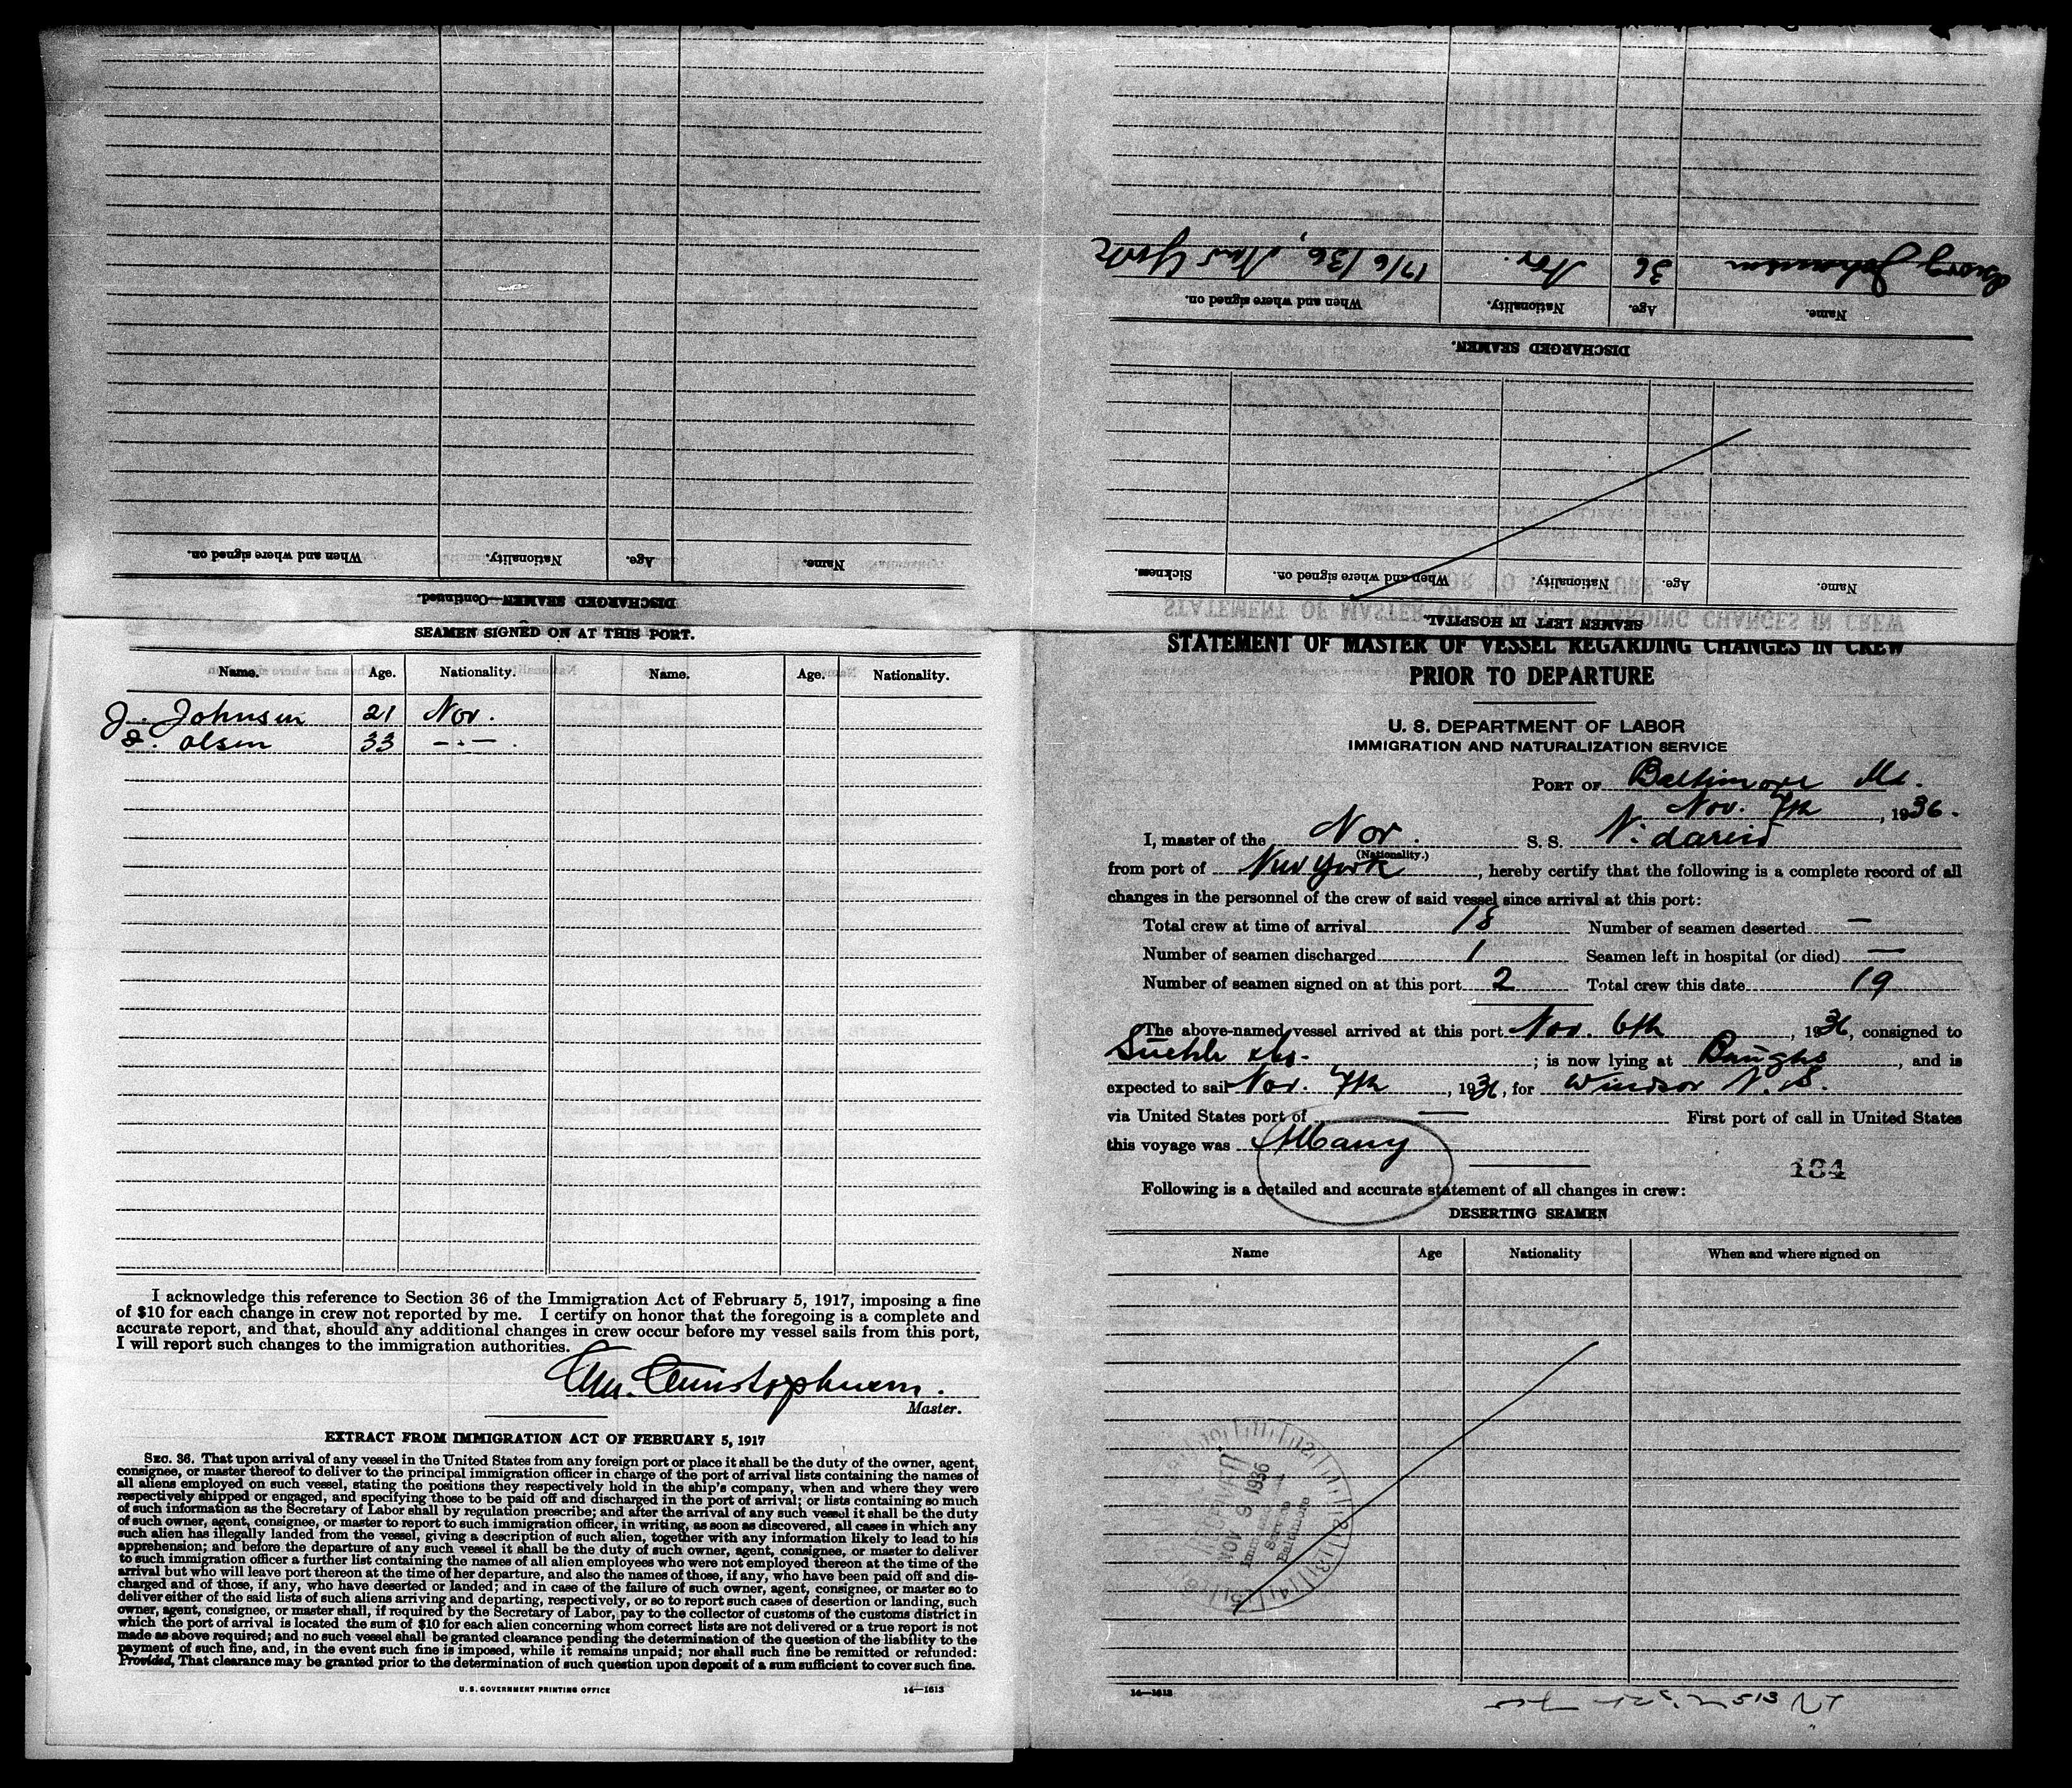 DISCHARGED SEAMEN—Continued.
Name. Age. Nationality. When and where signed on.
SEAMEN LEFT IN HOSPITAL.
Name. Age. Nationality. When and where signed on. Sickness.
DISCHARGED SEAMEN.
Name. Age. Nationality. When and where signed on.
Georg Johansen 36 Nor. 17/6/36, New York
SEAMEN SIGNED ON AT THIS PORT.
Name. Age. Nationality. Name. Age. Nationality.
J. Johnsen 21 Nor.
olsen 33 -.-
I acknowledge this reference to Section 36 of the Immigration Act of February 5, 1917, imposing a fine
of $10 for each change in crew not reported by me. I certify on honor that the foregoing is a complete and
accurate report, and that, should any additional changes in crew occur before my vessel sails from this port,
I will report such changes to the immigration authorities.
Master.
EXTRACT FROM IMMIGRATION ACT OF FEBRUARY 5, 1917
SEC. 36. That upon arrival of any vessel in the United States from any foreign port or place it shall be the duty of the owner, agent,
consignee, or master thereof to deliver to the principal immigration officer in charge of the port of arrival lists containing the names of
all aliens employed on such vessel, stating the positions they respectively hold in the ship's company, when and where they were
respectively shipped or engaged, and specifying those to be paid off and discharged in the port of arrival; or lists containing so much
of such information as the Secretary of Labor shall by regulation prescribe; and after the arrival of any such vessel it shall be the duty
of such owner, agent, consignee, or master to report to such immigration officer, in writing, as soon as discovered, all cases in which any
such alien has illegally landed from the vessel, giving a description of such alien, together with any information likely to lead to his
apprehension; and before the departure of any such vessel it shall be the duty of such owner, agent, consignee, or master to deliver
to such immigration officer a further list containing the names of all alien employees who were not employed thereon at the time of the
arrival but who will leave port thereon at the time of her departure, and also the names of those, if any, who have been paid off and dis-
charged and of those, if any, who have deserted or landed; and in case of the failure of such owner, agent, consignee, or master so to
deliver either of the said lists of such aliens arriving and departing, respectively, or so to report such cases of desertion or landing, such
owner, agent, consignee, or master shall, if required by the Secretary of Labor, pay to the collector of customs of the customs district in
which the port of arrival is located the sum of $10 for each alien concerning whom correct lists are not delivered or a true report is not
made as above required; and no such vessel shall be granted clearance pending the determination of the question of the liability to the
payment of such fine, and, in the event such fine is imposed, while it remains unpaid; nor shall such fine be remitted or refunded:
Provided, That clearance may be granted prior to the determination of such question upon deposit of a sum sufficient to cover such fine.
U. S. GOVERNMENT PRINTING OFFICE 14—1613
STATEMENT OF MASTER OF VESSEL REGARDING CHANGES IN CREW
PRIOR TO DEPARTURE
U. S. DEPARTMENT OF LABOR
IMMIGRATION AND NATURALIZATION SERVICE
PORT OF Baltimore Md.
Nov. 7th, 1936.
I, master of the Nor. S. S. Nidareid
(Nationality.)
from port of New York, hereby certify that the following is a complete record of all
changes in the personnel of the crew of said vessel since arrival at this port:
Total crew at time of arrival 18 Number of seamen deserted —
Number of seamen discharged 1 Seamen left in hospital (or died) —
Number of seamen signed on at this port 2 Total crew this date 19
The above-named vessel arrived at this port Nov. 6th, 1936, consigned to
; is now lying at Baughs, and is
expected to sail Nov. 7th, 1936, for Windsor N. S.
via United States port of — First port of call in United States
this voyage was Albany
134
Following is a detailed and accurate statement of all changes in crew:
DESERTING SEAMEN
Name Age Nationality When and where signed on
NOV 9 1936
Immigration
Service
Baltimore
14—1613